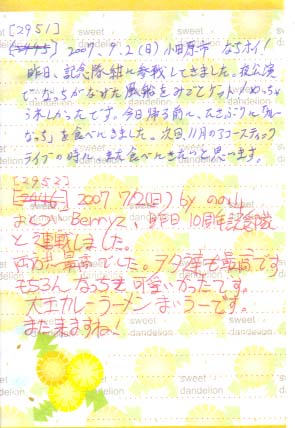 [2951]
2007.9.2(日)小田原市 なちホイ!
昨日、記念隊組に参戦してきました。夜公演
でなっちがなげた風船をみごとゲット!めっちゃ
うれしかったです。今日帰る前に、ひさぶりに「ルー
なっち」を食べにきました。次回、11月のアコースティック
ライブの時に、また食べにきたいと思います。
[2952]
2007.9/2(日) by
おとついBerryz、昨日10周年記念隊
と連戦しました。
両方、最高でした。ヲタ達も最高です
もちろん なっちも可愛いかったです。
大王カレーラーメンまいうーです。
また来ますね!
sweet
dandelion
sweet
dandelion